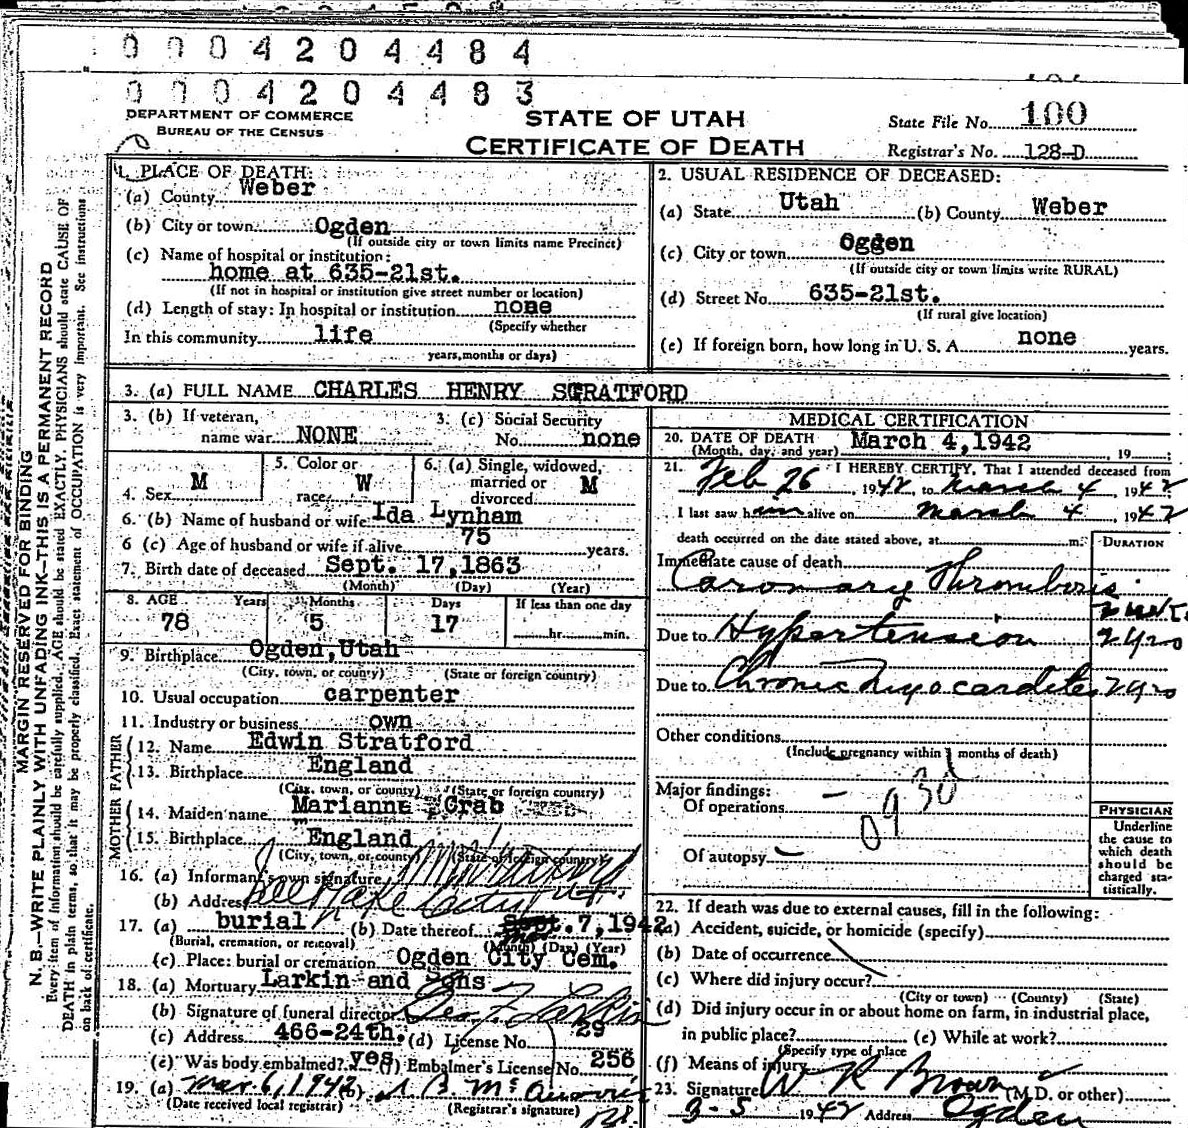 0004204484
0004204483
DEPARTMENT OF COMMERCE
BUREAU OF THE CENSUS
STATE OF UTAH
CERTIFICATE OF DEATH
State File No. 100
Registrar's No. 128-D
MARGIN RESERVED FOR BINDING
N. B.—WRITE PLAINLY WITH UNFADING INK—THIS IS A PERMANENT RECORD
Every item of information should be carefully supplied. AGE should be stated EXACTLY. PHYSICIANS should state CAUSE OF
DEATH in plain terms, so that it may be properly classified. Exact statement of OCCUPATION is very important. See instructions
on back of certificate.
1. PLACE OF DEATH:
(a) County Weber
(b) City or town Ogden
(If outside city or town limits name Precinct)
(c) Name of hospital or institution:
home at 635-21st.
(If not in hospital or institution give street number or location)
(d) Length of stay: In hospital or institution none
(Specify whether
In this community life
years, months or days)
2. USUAL RESIDENCE OF DECEASED:
(a) State Utah (b) County Weber
(c) City or town Ogden
(If outside city or town limits write RURAL)
(d) Street No. 635-21st.
(If rural give location)
(e) If foreign born, how long in U. S. A. none years.
3. (a) FULL NAME CHARLES HENRY STRATFORD
3. (b) If veteran, name war NONE
3. (c) Social Security No. none
4. Sex M
5. Color or race W
6. (a) Single, widowed, married or divorced M
6. (b) Name of husband or wife Ida Lynham
6 (c) Age of husband or wife if alive 75 years.
7. Birth date of deceased Sept. 17,1863
(Month) (Day) (Year)
8. AGE Years Months Days If less than one day
78 5 17 hr. min.
9. Birthplace Ogden,Utah
(City, town, or county) (State or foreign country)
10. Usual occupation carpenter
11. Industry or business own
FATHER
12. Name Edwin Stratford
13. Birthplace England
(City, town, or county) (State or foreign country)
MOTHER
14. Maiden name Marianne Crab
15. Birthplace England
(City, town, or county) (State or foreign country)
16. (a) Informant's own signature
(b) Address
17. (a) burial (b) Date thereof 7, 1942
(Burial, cremation, or removal) (Month) (Day) (Year)
(c) Place: burial or cremation Ogden City Cem.
18. (a) Mortuary Larkin and Sons
(b) Signature of funeral director Geo. F. Larkin
(c) Address 466-24th. (d) License No. 29
(e) Was body embalmed? yes (f) Embalmer's License No. 256
19. (a) Mar. 6, 1942 (b)
(Date received local registrar) (Registrar's signature)
MEDICAL CERTIFICATION
20. DATE OF DEATH March 4,1942
(Month, day, and year) , 19 ;
21. I HEREBY CERTIFY, That I attended deceased from
Feb 26, 1942, to March 4 1942
I last saw him alive on March 4, 1942
death occurred on the date stated above, at m.
DURATION
Immediate cause of death
Caronary Thrombosis
Due to Hypertension 2 yrs
Due to Chronic Myocarditis 2 yrs
Other conditions
(Include pregnancy within 3 months of death)
Major findings:
Of operations –
Of autopsy –
PHYSICIAN
Underline
the cause to
which death
should be
charged sta-
tistically.
22. If death was due to external causes, fill in the following:
(a) Accident, suicide, or homicide (specify)
(b) Date of occurrence
(c) Where did injury occur?
(City or town) (County) (State)
(d) Did injury occur in or about home on farm, in industrial place,
in public place? (e) While at work?
(Specify type of place
(f) Means of injury
23. Signature W R Brown (M.D. or other)
3-5 1942 Address Ogden